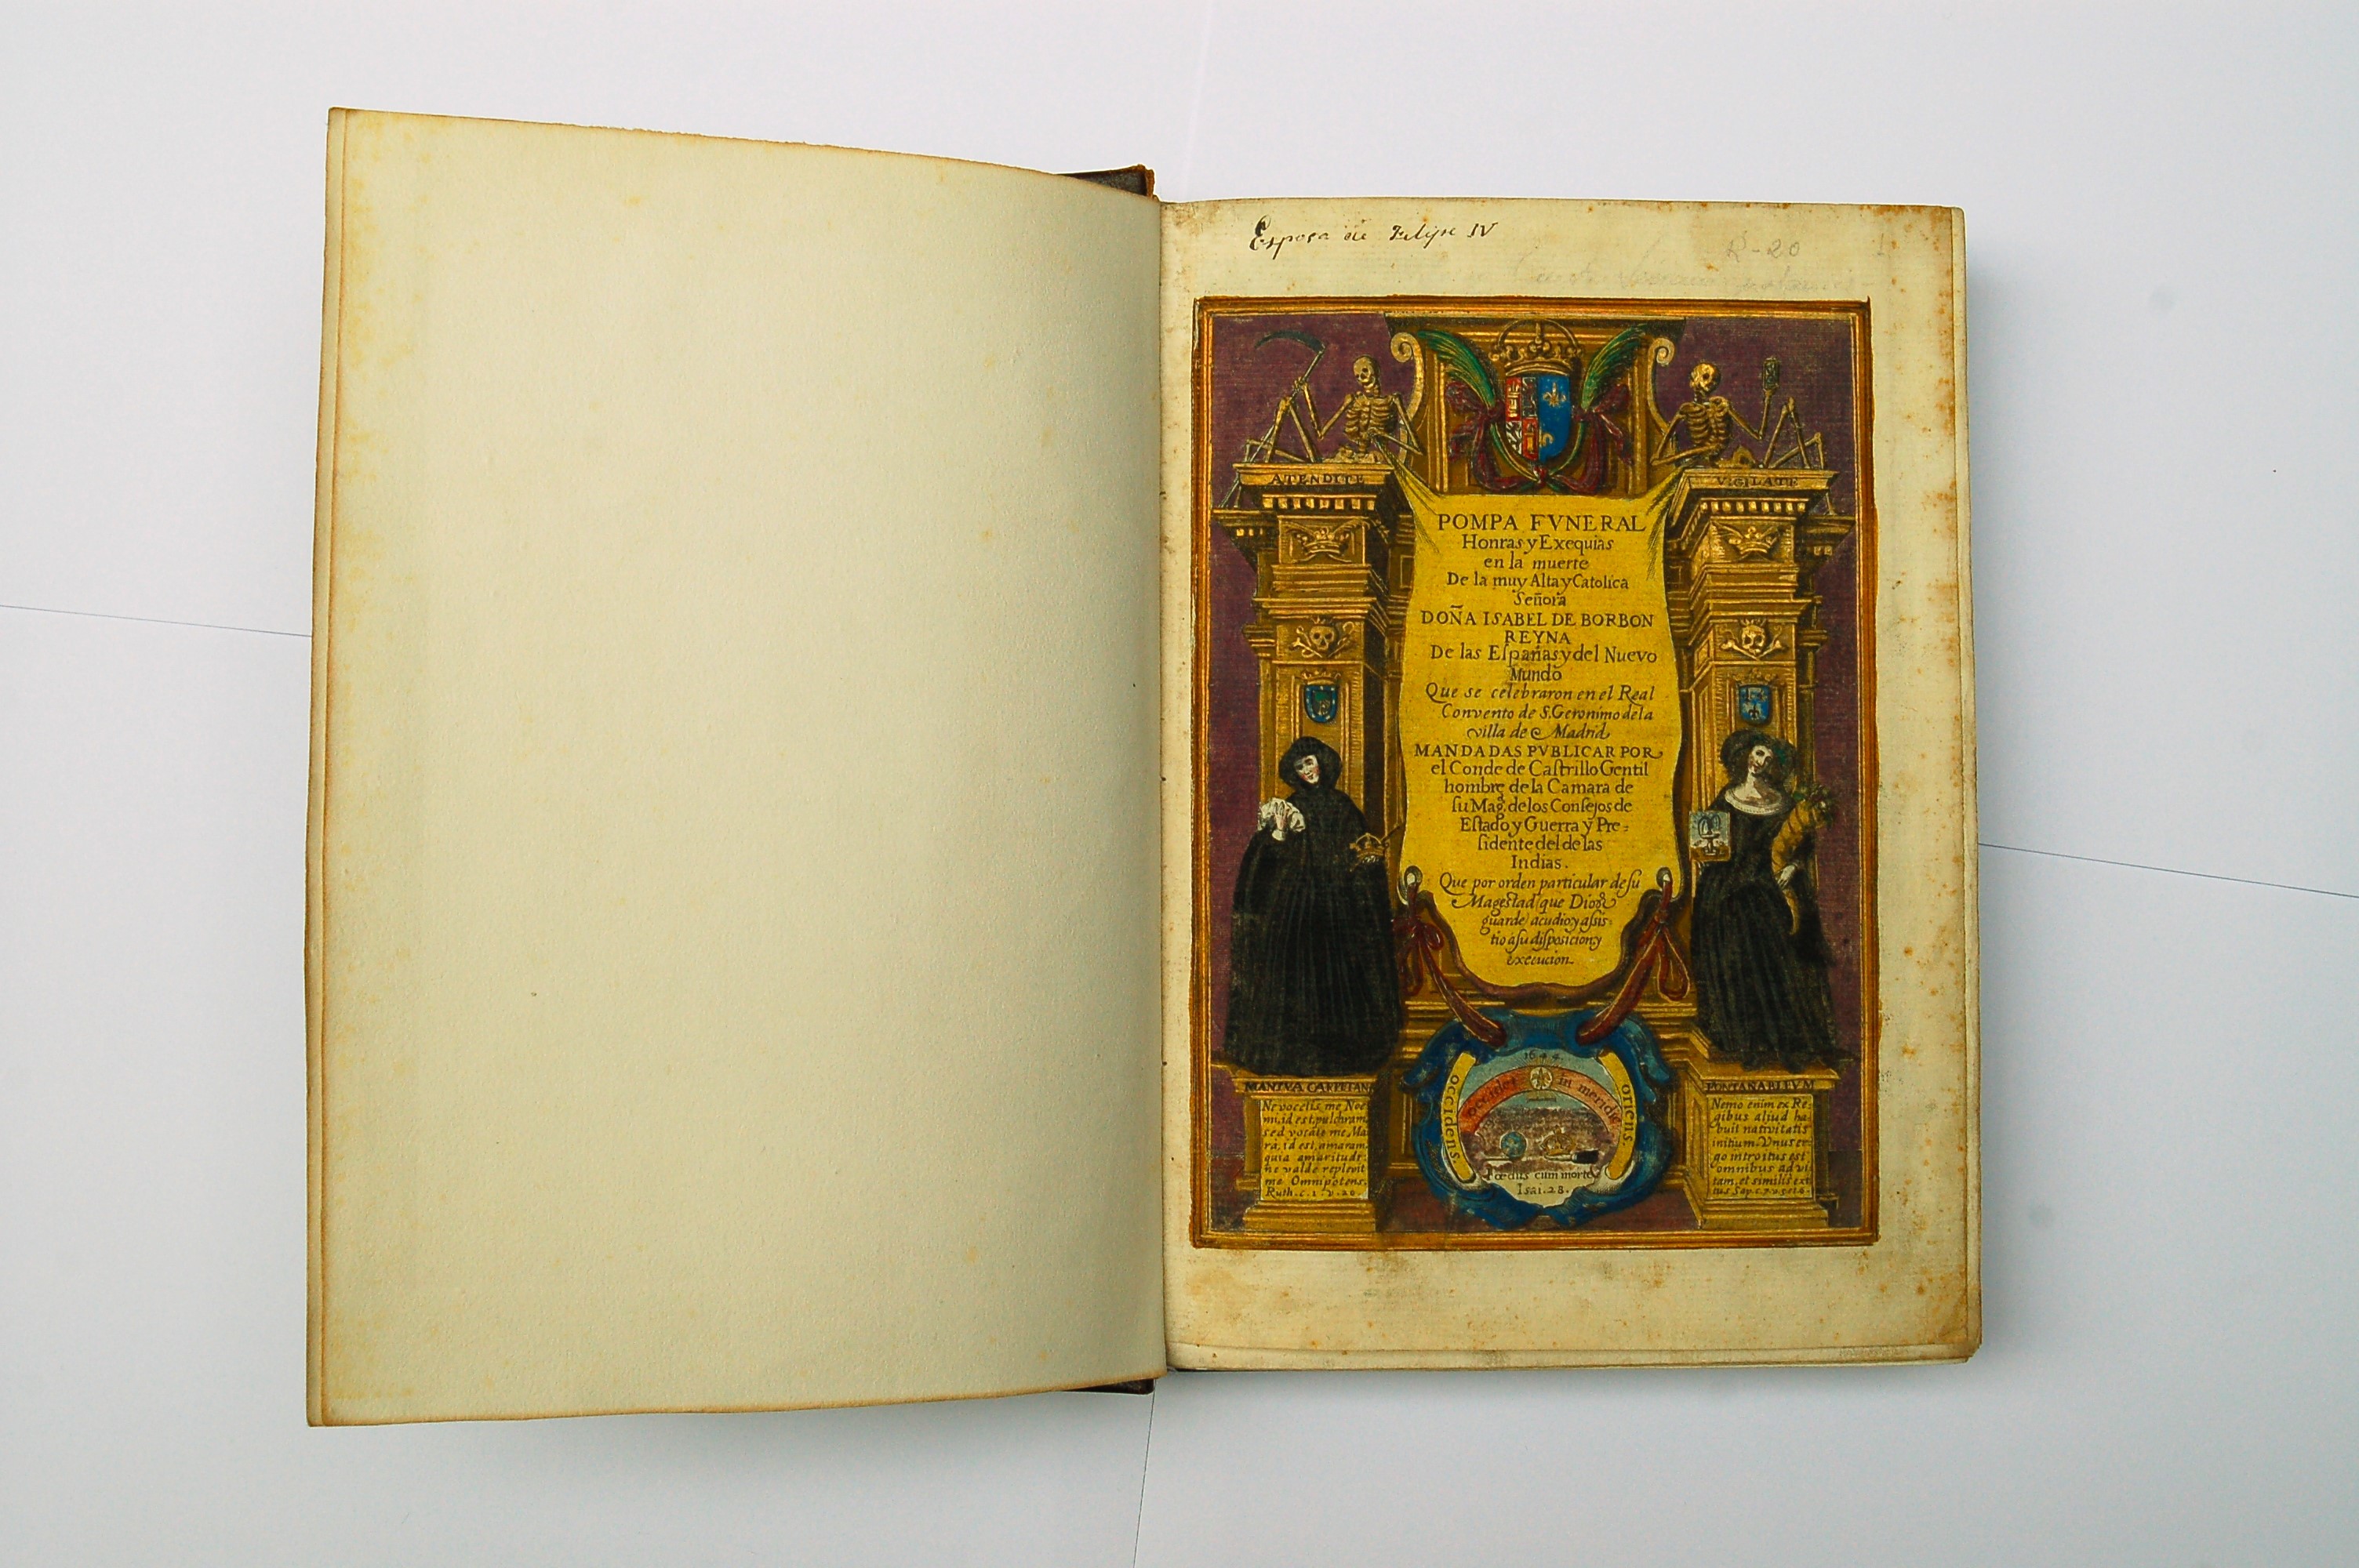 Esposa de Felipe IV
R-20 1
ATENDITE
VIGILATE
POMPA FVNERAL
Honras y Exequias
en la muerte
De la muy Alta y Catolica
Señora
DOÑA ISABEL DE BORBON
REYNA
De las Eſpañas y del Nuevo
Mundo
Que se celebraron en el Real
Convento de S. Geronimo de la
villa de Madrid
MANDADAS PVBLICAR POR
el Conde de Caſtrillo Gentil
hombre de la Camara de
ſu Mag. de los Conſejos de
Eſtado y Guerra y Pre-
ſidente del de las
Indias.
Que por orden particular de ſu
Mageſtad (que Dios
guarde) acudio y aſsis
tio à ſu diſposicion y
execucion
MANTVA CARPETAN
Ne vocetis me Noe
mi, id est, pulchram,
sed vocate me Ma
rà, id est, amaram
quia amaritudi
ne valde replevit
me Omnipotens.
Ruth. c. 1. v. 20.
1644
occidet in meridie
occidens
oriens
Fœdus cum morte
Isai. 28.
FONTANABLEVM
Nemo enim ex Re
gibus aliud ha
buit nativitatis
initium. Vnus er
go introitus est
omnibus ad vi
tam, et similis exi
tus Sap. c. 7.